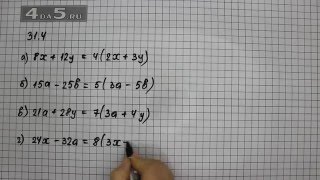 4DA5.RU
31.4
а) 8x + 12y = 4(2x + 3y)
б) 15a - 25b = 5(3a - 5b)
в) 21a + 28y = 7(3a + 4y)
г) 24x - 32a = 8(3x -